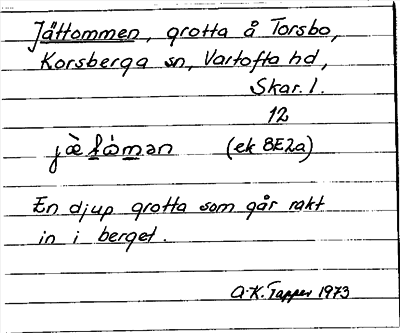 Jättommen, grotta å Torsbo,
Korsberga sn, Vartofta hd,
Skar. l.
12
(ek 8E2a)
En djup grotta som går rakt
in i berget.
A-K. Tapper 1973